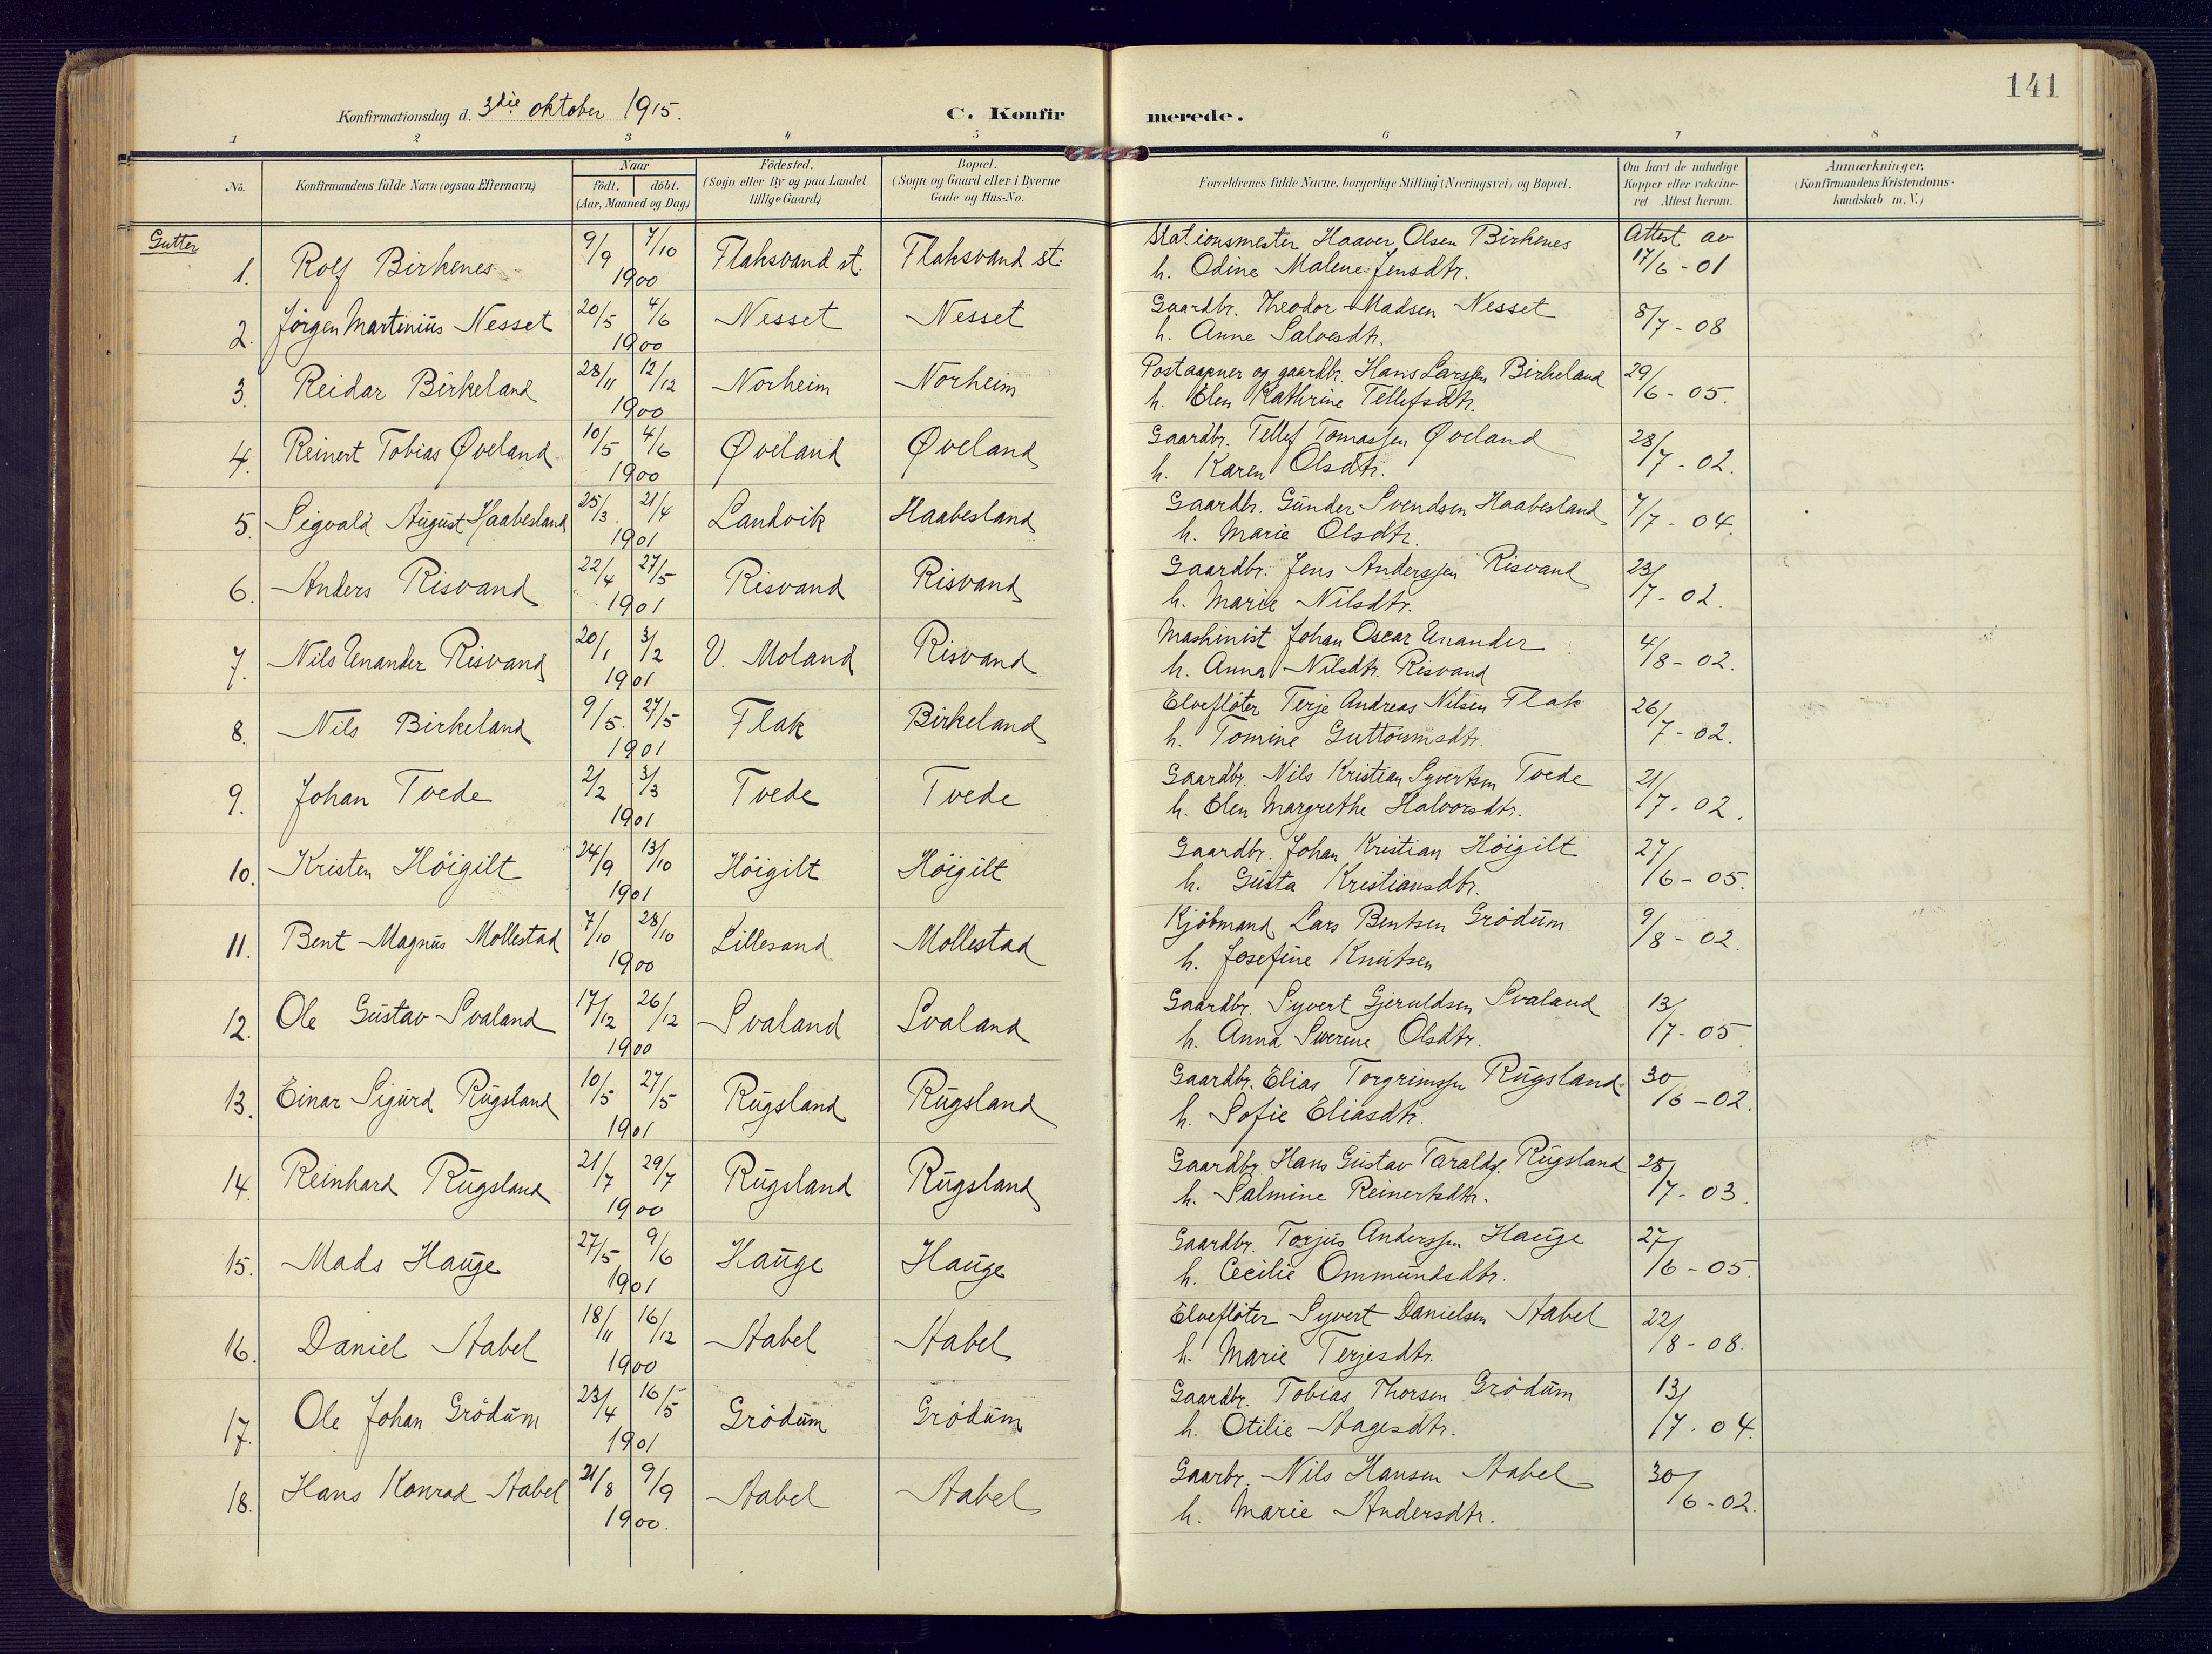 141
Konfirmationsdag d. 3die oktober 1915.
C. Konfirmerede.
1 2 3 4 5 6 7 8
No.
Konfirmandens fulde Navn (ogsaa Efternavn)
Naar
födt. döbt.
(Aar, Maaned og Dag)
Födested.
(Sogn eller By og paa Landet
tillige Gaard)
Bopæl.
(Sogn og Gaard eller i Byerne
Gade og Hus-No.
Forældrenes fulde Navne, borgerlige Stilling (Næringsvei) og Bopæl.
Om havt de naturlige
Kopper eller vakcine-
ret Attest herom.
Anmærkninger,
(Konfirmandens Kristendoms-
kundskab m. V.)
Gutter
1. Rolf Birkenes 9/9 7/10 1900 Flaksvand st. Flaksvand st. Stationsmester Haaver Olsen Birkenes Attest av
h. Odine Malene Jensdtr. 17/6 - 01
2. Jørgen Martinius Nesset 20/5 4/6 1900 Nesset Nesset Gaardbr. Theodor Madsen Nesset 8/7 - 08
h. Anne Salvesdtr.
3. Reidar Birkeland 28/11 12/12 1900 Norheim Norheim Postaapner og gaardbr. Hans Larssen Birkeland 29/6 - 05.
h. Elen Kathrine Tellefsdtr.
4. Reinert Tobias Øveland 10/5 4/6 1900 Øveland Øveland Gaardbr. Tellef Tomassen Øveland 28/7 - 02.
h. Karen Olsdtr.
5. Sigvald August Haabesland 25/3 21/4 1901 Landvik Haabesland Gaardbr. Gunder Svendsen Haabesland 7/7 - 04.
h. Marie Olsdtr.
6. Anders Risvand 22/4 27/5 1901 Risvand Risvand Gaardbr. Jens Anderssen Risvand 23/7 - 02.
h. Marie Nilsdtr.
7. Nils Unander Risvand 20/1 3/2 1901 V. Moland Risvand Mashinist Johan Oscar Unander 4/8 - 02.
h. Anna Nilsdtr. Risvand
8. Nils Birkeland 9/5. 27/5 1901 Flak Birkeland Elvefløter Terje Andreas Nilsen Flak 26/7 - 02.
h. Tomine Guttoumsdtr.
9. Johan Tvede 2/2 3/3 1901 Tvede Tvede Gaardbr. Nils Kristian Syvertsen Tvede 21/7 - 02.
h. Elen Margrethe Halvorsdtr.
10. Kristen Höigilt 24/9 13/10 1901 Höigilt Höigilt Gaardbr. Johan Kristian Höigilt 27/6 - 05.
h. Gusta Kristiansdtr.
11. Bent Magnus Mollestad 7/10 28/10 1900 Lillesand Mollestad Kjöbmand Lars Bentsen Grödum 9/8 - 02.
h. Josefine Knutsen
12. Ole Gustav Svaland 17/12 26/12 1900 Svaland Svaland Gaardbr. Syvert Gjeruldsen Svaland 13/7 - 05
h. Anna Severine Olsdtr.
13. Einar Sigurd Rugsland 10/5 27/5 1901 Rugsland Rugsland Gaardbr. Elias Torgrimssen Rugsland 30/6 - 02.
h. Sofie Eliasdtr.
14. Reinhard Rugsland 21/7 29/7 1900 Rugsland Rugsland Gaardbr. Hans Gustav Taralds. Rugsland 28/7 - 03.
h. Salmine Reinertsdtr.
15. Mads Hauge 27/5 9/6 1901 Hauge Hauge Gaardbr. Torjus Anderssen Hauge 27/6 - 05.
h. Cecilie Ommundsdtr.
16. Daniel Stabel 18/11 16/12 1900 Stabel Stabel Elvefløter Syvert Danielsen Stabel 22/8 - 08.
h. Marie Terjesdtr.
17. Ole Johan Grödum 23/4 16/5 1901 Grödum Grödum Gaardbr. Tobias Thorsen Grödum 13/7 . 04.
h. Otilie Aagesdtr.
18. Hans Konrad Stabel 21/8 9/9 1900. Stabel Stabel Gaarbr. Nils Hansen Stabel 30/6 - 02.
h. Marie Andersdtr.